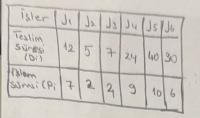 İşler J1 J2 J3 J4 J5 J6
Teslim süresi (Di) 12 5 7 24 40 30
İşlem süresi (Pi 7 2 2 9 10 6